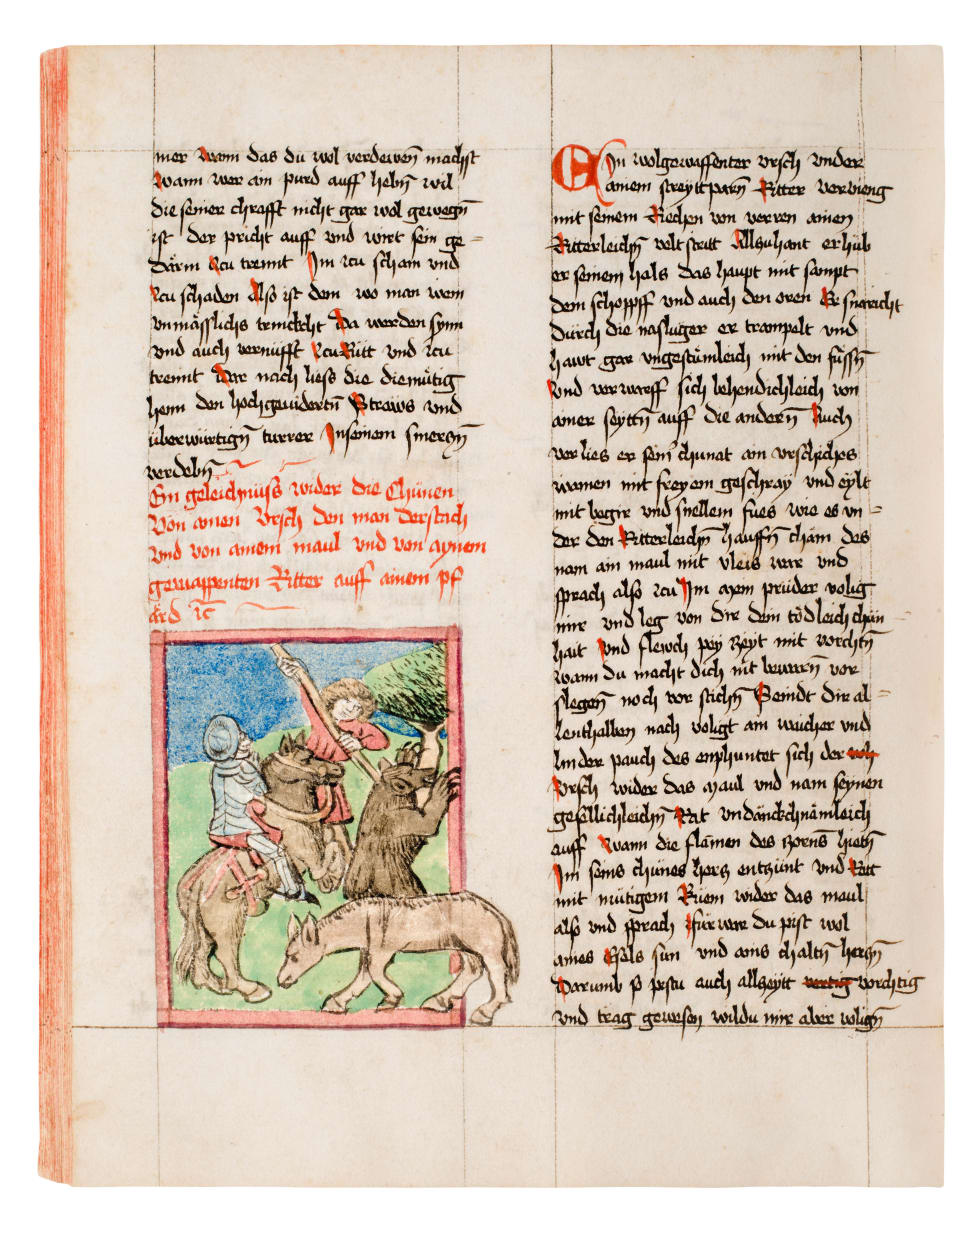 mer wann das du wol verderben machst
wann wer ain purd auff hebñ wil
die seiner chrafft nicht gar wol gewegñ
ist der pricht auff vnd wirt sein ge=
därm zcu trennt Im zcu scham vnd
zcu schaden Also ist dem wo man wein
vnmässlichs trinckcht Da werden synn
vnd auch vernufft zcu Ritt vnd zcu
trennt Dar nach liess die diemütig
henn den hochgeuidertñ Straws vnd
überwürtigñ turrer In seinem smerczñ
verderbñ
Ein geleichnüss wider die Chünen
Von ainen Vrsch den man derstach
vnd von ainem maul vnd von aynem
gewappenten Ritter auff ainem pf
ärd
EIn wolgewaffenter vrsch vnder
ainem streyttparñ Ritter vervieng
mit seinem Rechen von verren ainen
Ritterleichñ veltstritt Allzuhant erhüb
er seinem hals das haupt mit sampt
dem schopff vnd auch den oren Er snaricht
durch die naslüger er trampelt vnd
hawt gar vngestümleich mit den füssñ
vnd verwarff sich behendichleich von
ainer seyttñ auff die anderñ Auch
verlies er sein chunat am vrschiches
wainen mit freyem geschray vnd eylt
mit begir vnd snellem fues wie es vn=
der den Ritterleichñ hauffñ chäm des
nam ain maul mit vleis war vnd
sprach also zcu Im ayem prüder volig
mir vnd leg von dir dein tödleich chün
hait vnd flewch pey zeyt mit vorchtñ
wann du macht dich nit bewerñ vor
slegen noch vor stichñ Seindt dir al=
lenthalben nach voligt ain weicher vnd
linder pauch des enphuntet sich der
Vrsch wider das Maul vnd nam seynen
gesellichleichñ Rat vndänckchnämleich
auff wann die flamen des zornñ hietñ
Im seins chünes hercz entzünt vnd Rett
mit mütigem Rüem wider das maul
also vnd sprach fürwar du pist wol
aines Esels sun vnd ains chaltñ herczñ
Darumb so pistu auch allzeytt vertig vorchtig
vnd trag gewesen wildu mir aber volign̄